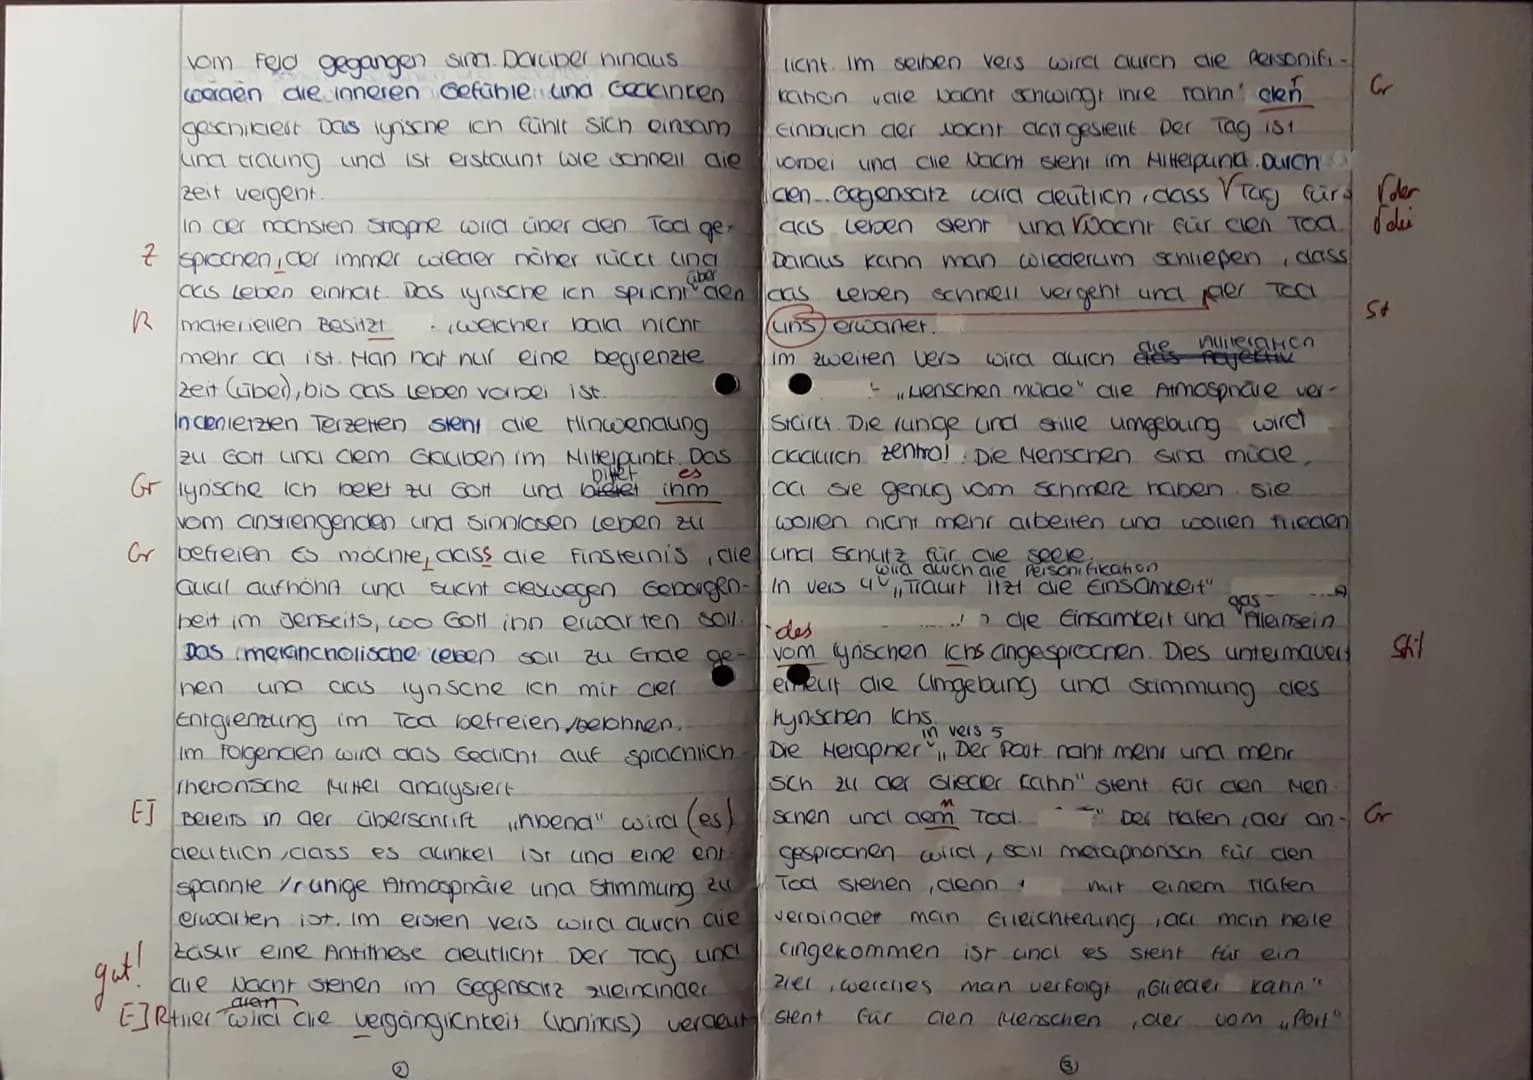 vom Feld gegangen sind. Darüber hinaus
werden die inneren Gefühle und Gedanken
geschildert. Das lyrische Ich fühlt sich einsam
und traurig und ist erstaunt wie schnell die
Zeit vergeht.
In der nächsten Strophe wird über den Tod ge-
Z sprochen, der immer wieder näher rückt und
das Leben einholt. Das lyrische Ich spricht über den
R materiellen Besitzt, welcher bald nicht
mehr da ist. Man hat nur eine begrenzte
Zeit (übel), bis das Leben vorbei ist.
In den letzten Terzetten steht die Hinwendung
zu Gott und dem Glauben im Mittelpunkt. Das
Gr lyrische Ich betet zu Gott und bittet ihm es
vom anstrengenden und sinnlosen Leben zu
Gr befreien. Es möchte, dass die Finsternis, die
Qual aufhört und sucht deswegen Geborgen-
heit im Jenseits, wo Gott ihn erwarten soll.
Das melancholische Leben soll zu Ende ge-
hen und das lyrische Ich mit der
Entgrenzung im Tod befreien/belohnen.
Im Folgenden wird das Gedicht auf sprachlich
rhetorische Mittel analysiert.
E] Bereits in der Überschrift „Abend" wird (es)
deutlich, dass es dunkel ist und eine ent-
spannte / ruhige Atmosphäre und Stimmung zu
erwarten ist. Im ersten Vers wird durch die
Zäsur eine Antithese deutlicht. Der Tag und
gut! die Nacht stehen im Gegensatz zueinander.
E] R Hier wird die Vergänglichkeit (vanitas) verdeut-
2
licht. Im selben Vers wird durch die Personifi-
kation „die Nacht schwingt ihre Fahn" den Gr
Einbruch der Nacht dargestellt. Der Tag ist
vorbei und die Nacht steht im Mittelpund. Durch
den Gegensatz wird deutlich, dass √ Tag für √ der
das Leben steht und √ Nacht für den Tod. √ die
Daraus kann man wiederum schließen, dass
das Leben schnell vergeht und der Tod St
uns erwartet.
Im zweiten Vers wird durch die Alliteration
„Menschen müde" die Atmosphäre ver-
stärkt. Die ruhige und stille Umgebung wird
dadurch zentral. Die Menschen sind müde,
da sie genug vom Schmerz haben. Sie
wollen nicht mehr arbeiten und wollen Frieden
und Schutz für die Seele.
wird durch die Personifikation
In Vers 4 „Traurt itzt die Einsamkeit"
die Einsamkeit und das Alleinsein
des vom lyrischen Ichs angesprochen. Dies untermauert Stil
erneut die Umgebung und Stimmung des
lyrischen Ichs.
in Vers 5
Die Metapher „Der Port naht mehr und mehr
sich zu der Glieder Kahn" steht für den Men-
schen und dem Tod. Der Hafen, der an- Gr
gesprochen wird, soll metaphorisch für den
Tod stehen, denn mit einem Hafen
verbindet man Erleichterung, da man heile
angekommen ist und es steht für ein
Ziel, welches man verfolgt. „Glieder Kahn"
steht für den Menschen, der vom „Port"
3